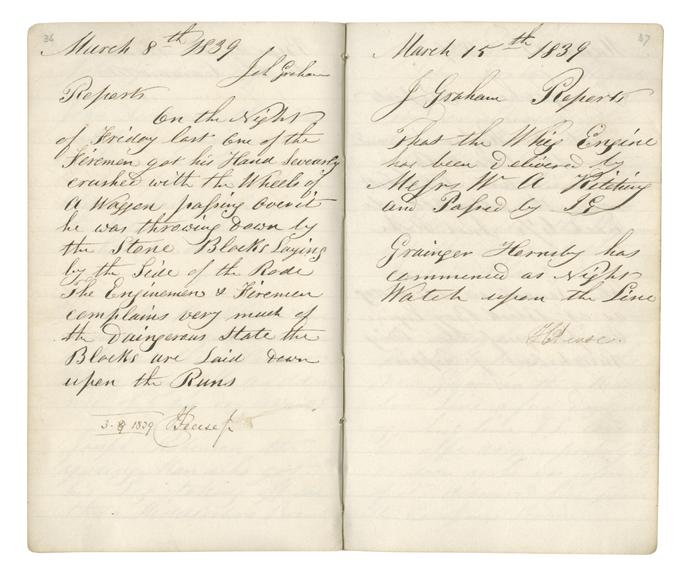 36
March 8th 1839
Joh Graham
Reports
On the Night
of Friday last One of the
Firemen got his Hand Severely
crushed with the Wheels of
A Waggen passing Over it
he was throwing Down by
the Stone Blocks Laying
by the Side of the Rode
The Enginemen & Firemen
complains very much of
the Daingerous State the
Blocks are Laid down
upon the Runs
3-8 1839
37
March 15th 1839
J Graham Reports
That the Whig Engine
has been Delivered by
Messrs Wm A Kitching
and Passed by JG
Grainger Hornsby has
commenced as Night
Watch upon the Line
HPease